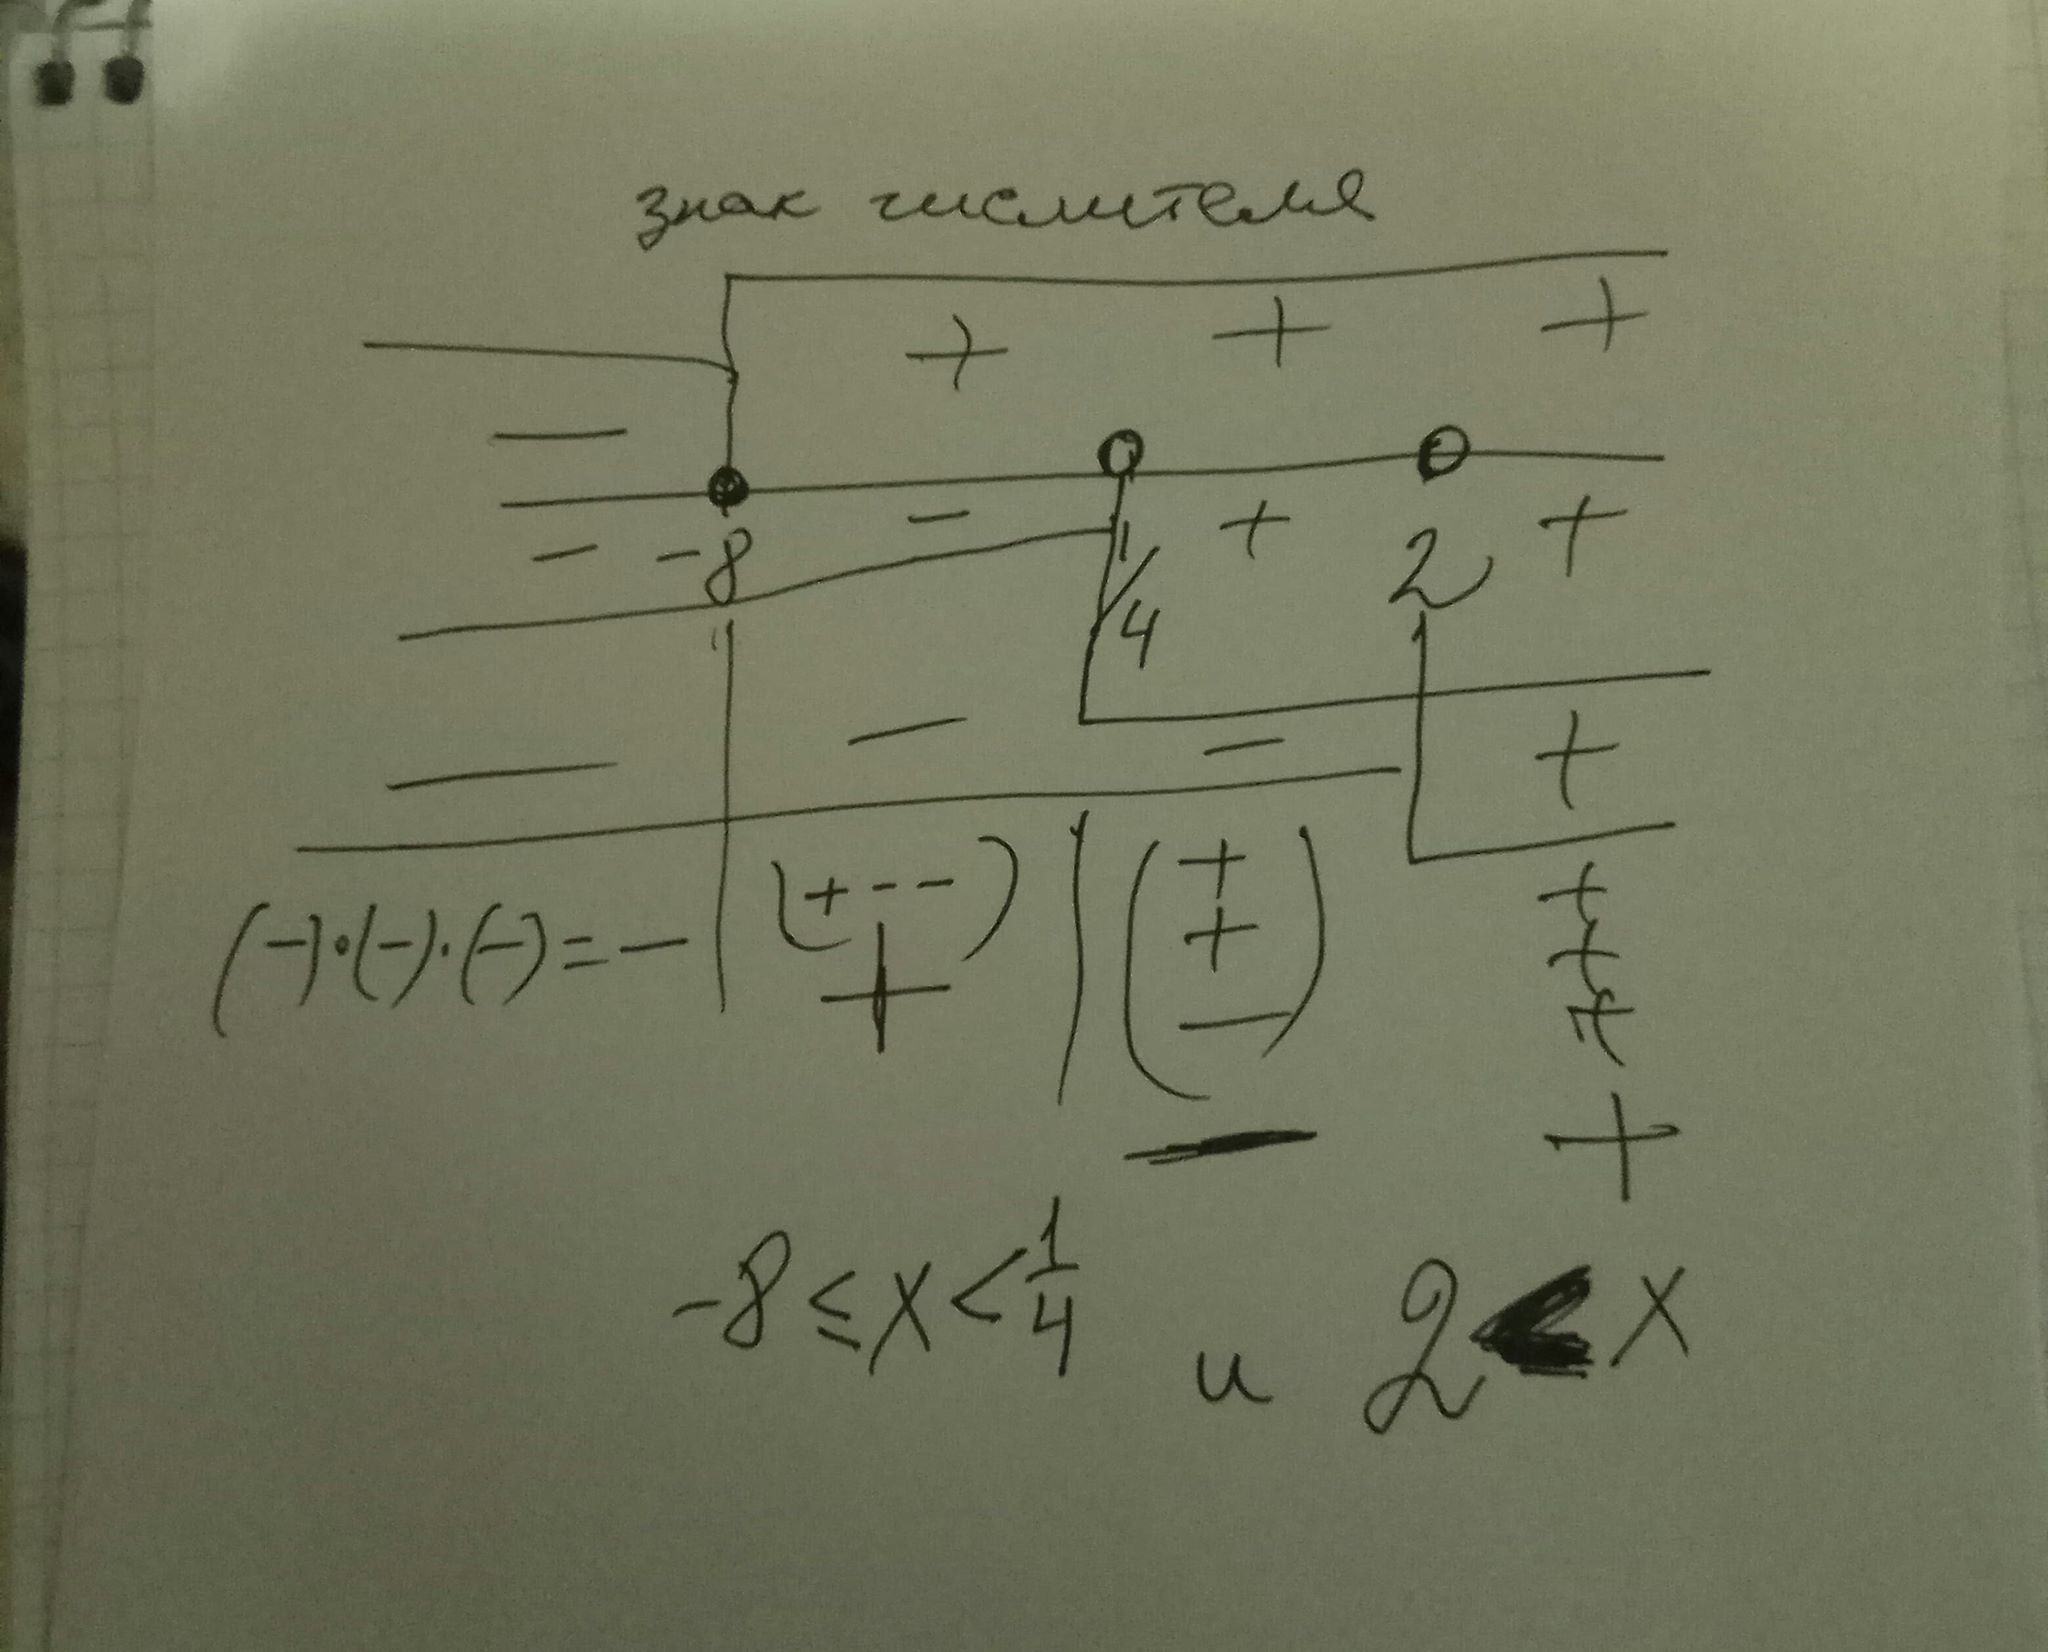 знак числителя
+ + +
—
- - + +
-8 1/4 2
— — - +
(-)·(-)·(-)=- | (+--) | (+ + —) + + +
+ — +
-8 ≤ x < 1/4 и 2 < x